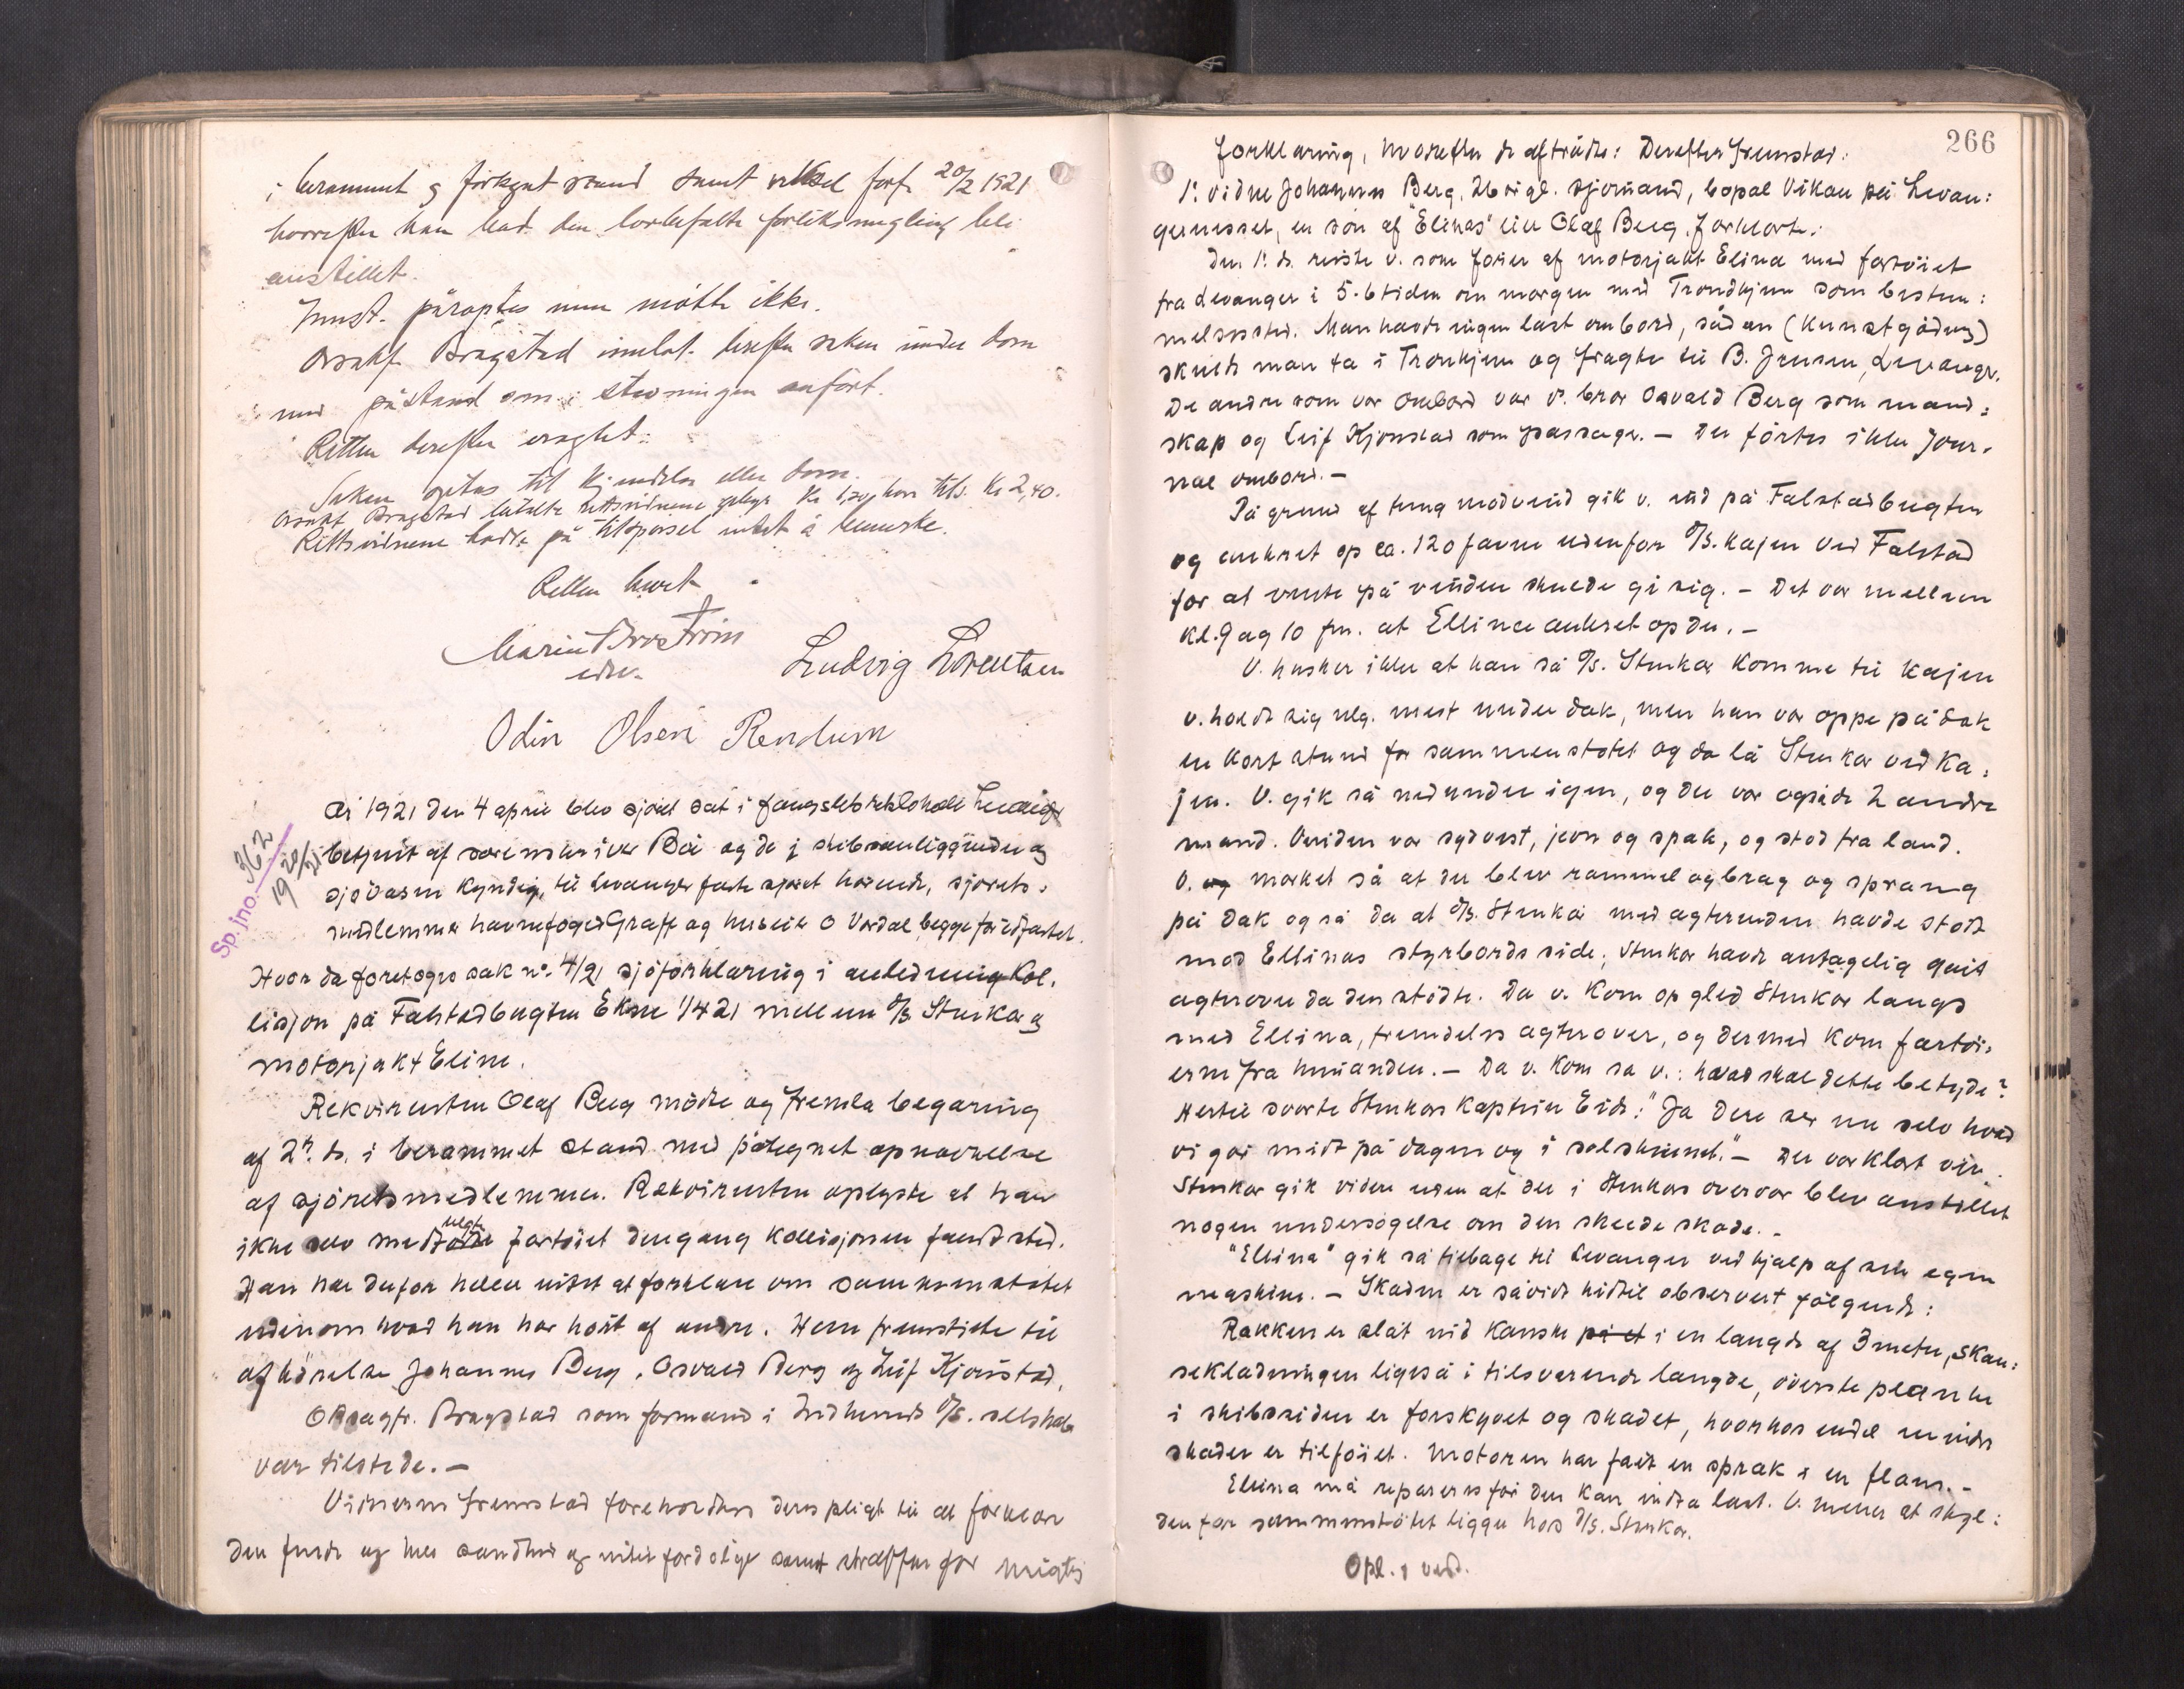 i berammet og forkynt stand samt veksel forf. 20/2 1921
hvorefter han bad den lovbefalte forliksmegling bli
anstillet.
Innst. påroptes men møtte ikke.
Orsakf. Bragstad innlot derefter saken under dom
med påstand som i stevningen anført.
Retten derefter eragtet:
Saken optas til kjendelse eller dom.
Orsakf. Bragstad betalte rettsvidnene gebyr kr 1,20 hver tils. kr 2,40.
Rettsvidnene hadde på tilspørsel intet å bemerke.
Retten hevet
Ludvig Lorentsen
edv.
Odin Olsen Rendum
År 1921 den 4 april blev sjøret sat i fængselsretslokale Levanger
betjent af sorenskriver Bøe og de i skibsanliggender og
sjøvæsen kyndige, til Levanger faste sjøret hørende, sjørets-
medlemmer havnefoged Graff og huseier O Vordal begge før edfæstet.
Sp.jno. 362 / 19 20/21
Hvor da foretoges sak no. 4/21 sjøforklaring i anledning kol-
lisjon på Falstadbugten Ekne 1/4 21 mellem D/S Stenkær og
motorjakt Eline.
Rekvirenten Olaf Berg mødte og fremla begæring
af 2n. ds. i berammet stand med påtegnet opnævnelse
af sjøretsmedlemmer. Rekvirenten oplyste at han
ikke selv medfulgte fartøiet dengang kollisjonen fandt sted.
Han har derfor heller intet at forklare om sammenstøtet
undtagen hvad han har hørt af andre. Hans fremstilte til
afhørelse Johannes Berg, Osvald Berg og Leif Kjønstad.
O.r.sagfr. Bragstad som formand i Indherreds D/S. selskab
var tilstede. —
Vidnerne fremstod foreholdtes deres pligt til at forklare
den fulde og hele sandhed og intet fordølge samt straffen for urigtig
266
forklaring, hvorefter de aftrådte: Derefter fremstod:
1. vidne Johannes Berg, 26 år gl. sjømand, bopæl Vikan på Levan:
gernesset, en søn af "Elinas" eier Olaf Berg. Forklarte:
Den 1. ds. reiste v. som fører af motorjakt Elina med fartøiet
fra Levanger i 5-6 tiden om morgen med Trondhjem som bestem:
melsessted. Man havde ingen last ombord, sådan (kunstgødning)
skulde man ta i Tronhjem og fragte til B. Jensen, Levanger.
De andre som var ombord var v. bror Osvald Berg som mand:
skap og Leif Kjønstad som passager. — Der førtes ikke jour-
nal ombord. —
På grund af tung modvind gik v. ind på Falstadbugten
og ankret op ca. 120 favne udenfor D/S. kajen ved Falstad
for at vente på vinden skulde gi sig. — Det var mellem
kl. 9 og 10 fm. at Ellina ankret op der. —
V. husker ikke at han så D/S. Stenkær komme til kajen
v. holdt sig nlg. mest under dæk, men han var oppe på dæk
en kort stund før sammenstøtet og da lå Stenkær ved ka:
jen. V. gik så nedunder igjen, og der var også de 2 andre
mand. Vinden var sydvest, jevn og spak, og stod fra land.
V. og mærket så at der blev rammel og brag og sprang
på dæk og så da at D/S. Stenkær med agterenden havde stødt
mod Ellinas styrbords side; Stenkær havde antagelig gåit
agterover da den stødte. Da v. kom op gled Stenkær langs
med Ellina, fremdeles agterover, og dermed kom fartøi-
erne fra hinanden. — Da v. kom sa v.: hvad skal dette betyde?
Hertil svarte Stenkærs kaptein Eid: "Ja dere ser nu selv hvad
vi gør midt på dagen og i solskinnet." — Der var klart veir.
Stenkær gik videre uden at der i Stenkærs overvær blev anstillet
nogen undersøgelse om den skeede skade. —
"Ellina" gik så tilbage til Levanger ved hjælp af sin egen
maskine. — Skaden er såvidt hidtil observert følgende:
Rækken er slåt ned kanske på et i en længde af 3 meter, skan:
seklædningen ligeså i tilsvarende længde, øverste planke
i skibssiden er forskyvet og skadet, hvorhos endel mindre
skader er tilføiet. Motoren har fået en spræk i en flens. —
Ellina må repareres før den kan indta last. V. mener at skyl:
den for sammenstøtet ligger hos D/S. Stenkær.
Opl. & vedt.